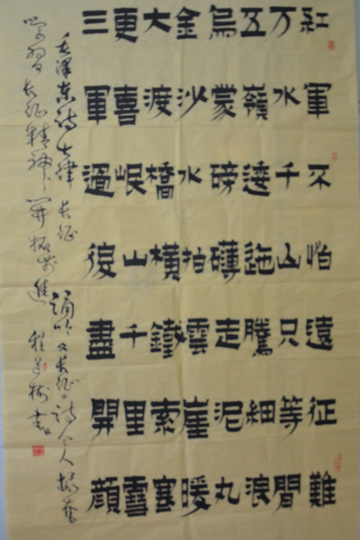 紅軍不怕遠征難
万水千山只等間
五嶺逶迤騰細浪
烏蒙磅礴走泥丸
金沙水拍雲崖暖
大渡橋橫鐵索寒
更喜岷山千里雪
三軍過後盡開顏
毛澤東詩七律長征 誦吟《長征》詩令人振奮
學習長征精神 開拓前進 書